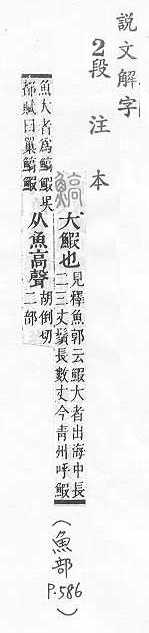 說文解字
2段注本
鰝
大鰕也
見釋魚郭云鰕大者出海中長
二三丈鬚長數丈今青州呼鰕
魚大者為鰝鰕吳
都賦曰罺鰝鰕
从魚高聲
胡倒切
二部
(魚部
P.586)